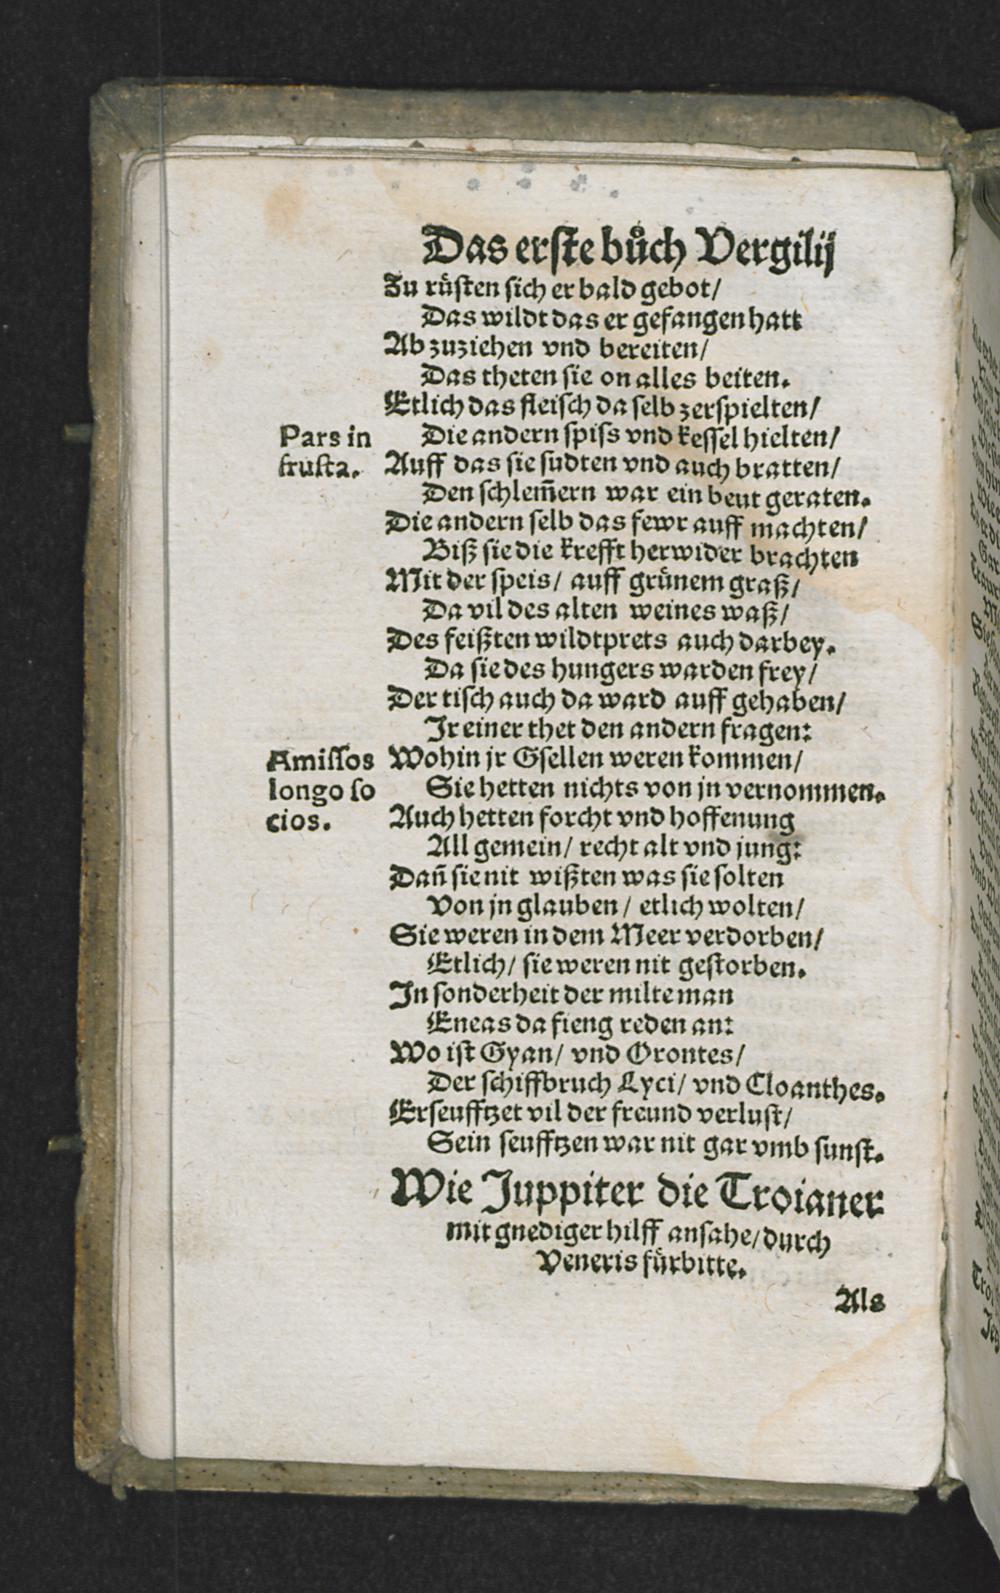 Das erſte bůch Vergilij
Zu rüſten ſich er bald gebot/
Das wildt das er gefangen hatt
Ab zuziehen vnd bereiten/
Das theten ſie on alles beiten.
Etlich das fleiſch da ſelb zerſpielten/
Pars in
fruſta.
Die andern ſpiſs vnd keſſel hielten/
Auff das ſie ſudten vnd auch bratten/
Den ſchlem̃ern war ein beut geraten.
Die andern ſelb das fewr auff machten/
Biß ſie die krefft herwider brachten
Mit der ſpeis/ auff grünem graß/
Da vil des alten weines waß/
Des feißten wildtprets auch darbey.
Da ſie des hungers warden frey/
Der tiſch auch da ward auff gehaben/
Ir einer thet den andern fragen:
Amiſſos
longo ſo
cios.
Wohin jr Gſellen weren kommen/
Sie hetten nichts von jn vernommen.
Auch hetten forcht vnd hoffenung
All gemein/ recht alt vnd jung:
Dañ ſie nit wißten was ſie ſolten
Von jn glauben/ etlich wolten/
Sie weren in dem Meer verdorben/
Etlich/ ſie weren nit geſtorben.
In ſonderheit der milte man
Eneas da fieng reden an:
Wo iſt Gyan/ vnd Orontes/
Der ſchiffbruch Lyci/ vnd Cloanthes.
Erſeufftzet vil der freund verluſt/
Sein ſeufftzen war nit gar vmb ſunſt.
Wie Juppiter die Troianer
mit gnediger hilff anſahe/ durch
Veneris fürbitte.
Als